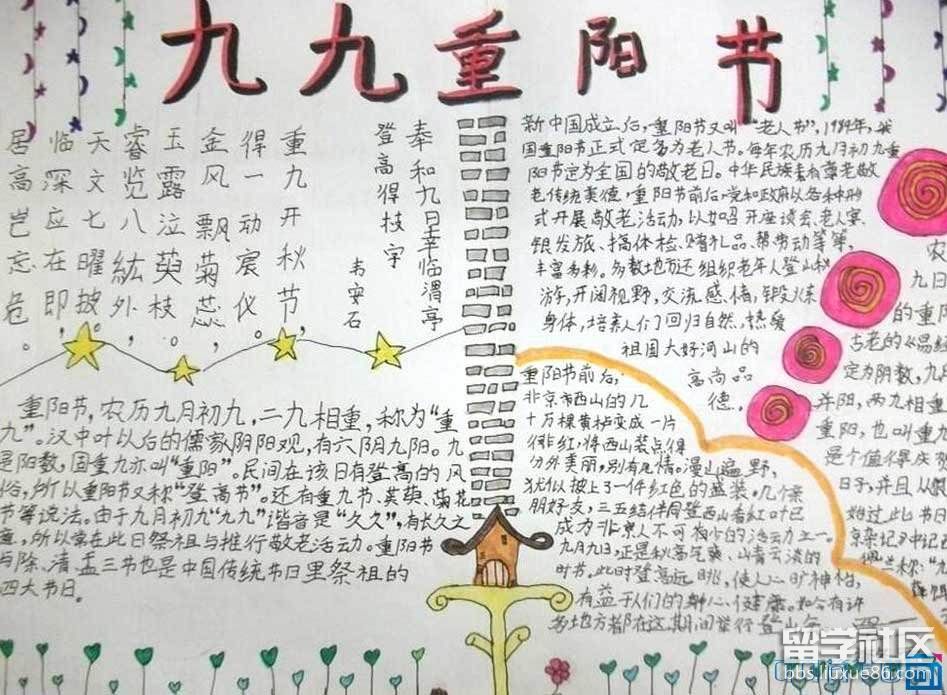 九九重阳节
奉和九日幸临渭亭
登高得枝字
韦安石
重九开秋节，
得一动宸仪。
金风飘菊蕊，
玉露泣萸枝。
睿览八紘外，
天文七曜披。
临深应在即，
居高岂忘危。
重阳节，农历九月初九，二九相重，称为“重
九”。汉中叶以后的儒家阴阳观，有六阴九阳。九
是阳数，固重九亦叫“重阳”。民间在该日有登高的风
俗，所以重阳节又称“登高节”。还有重九节、茱萸、菊花
节等说法。由于九月初九“九九”谐音是“久久”，有长久之
意，所以常在此日祭祖与推行敬老活动。重阳节
与除、清、盂三节也是中国传统节日里祭祖的
四大节日。
新中国成立后，重阳节又叫“老人节”，1989年，我
国重阳节正式定名为老人节。每年农历九月初九重
阳节定为全国的敬老日。中华民族素有尊老敬
老传统美德，重阳节前后，党和政府以各种形
式开展敬老活动，以如召开座谈会、老人宴、
银发旅、搞体检、赠礼品、帮劳动等等，
丰富多彩。多数地方还组织老年人登山秋
游，开阔视野，交流感情，锻炼
身体，培养人们回归自然、热爱
祖国大好河山的
高尚品
德。
重阳节前后，
北京市西山的几
十万棵黄栌变成一片
绯红，将西山装点得
分外美丽，别有风情。漫山遍野，
犹似披上了一件红色的盛装。几个亲
朋好友，三五结伴同登西山看红叶已
成为北京人不可或少的活动之一。
九月九日，正是秋高气爽、山青云淡的
时节。此时登高远眺，使人心旷神怡，
有益于人们的身心健康。如今有许
多地方都在这期间举行登山
农
九日
的重阳
古老的《易经
定为阴数，九
并阳，两九相重
重阳，也叫重
是个值得庆
日子，并且从
始过此节日
京杂记》中记
留学社区
bbs.liuxue86.com